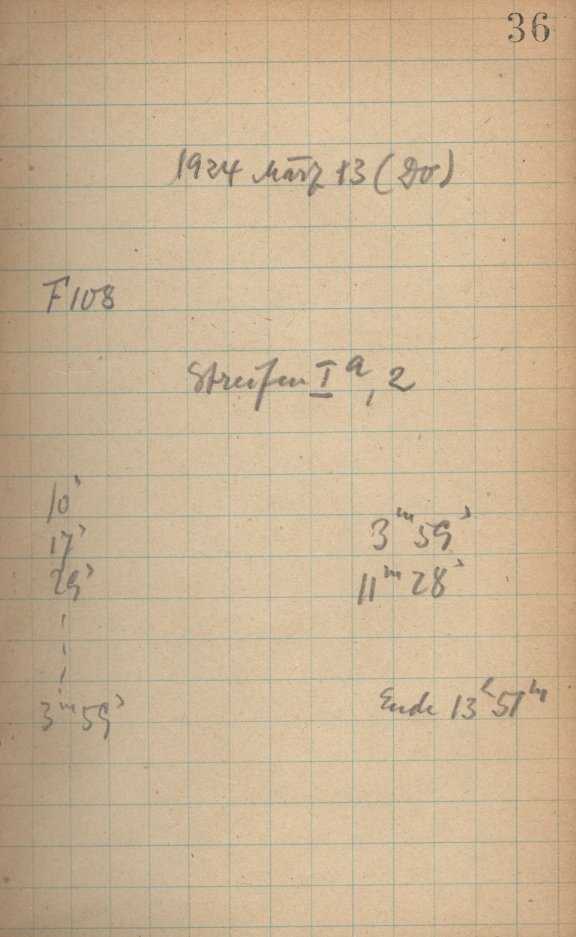 36
1924 März 13 (Do)
F108
Streifen I a, 2
10ˢ
17ˢ
29ˢ
3ᵐ 59ˢ
11ᵐ 28ˢ
3ᵐ 59ˢ
Ende 13ʰ 51ᵐ